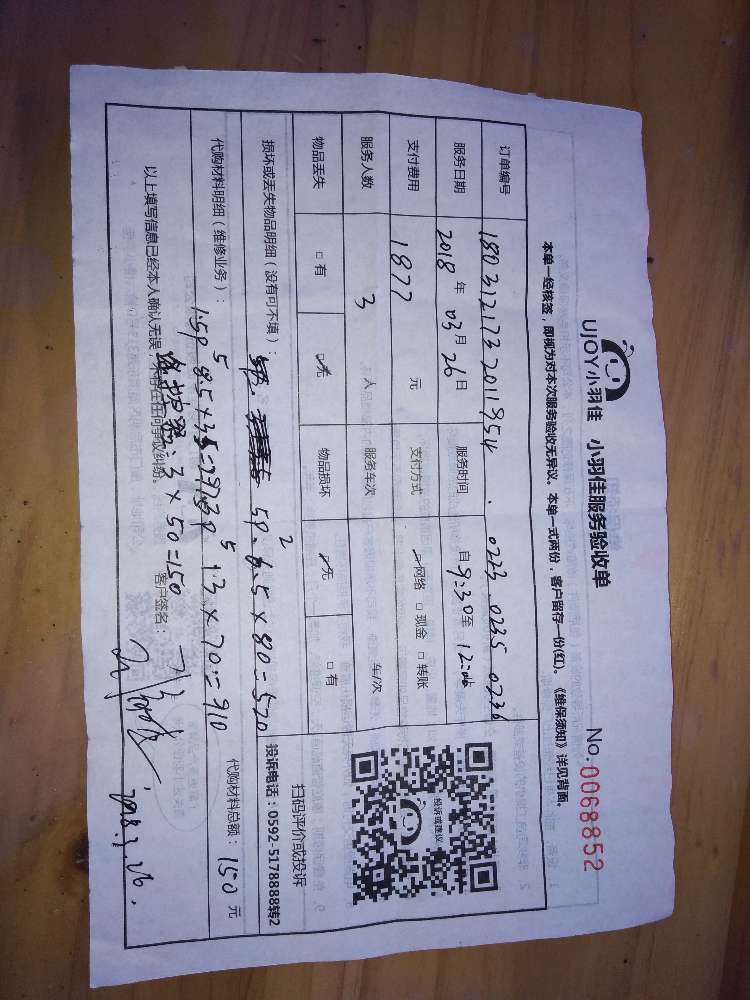 UJOY小羽佳 小羽佳服务验收单 No.0068852
本单一经核签，即视为对本次服务验收无异议。本单一式两份，客户留存一份(红)。《维保须知》详见背面。
订单编号 180312173 2011954 . 0223 0235 0236
服务日期 2018年03月26日 服务时间 自9:30至12:00
支付费用 1877 元 支付方式 ☑网络 □现金 □转账
服务人数 3 人 服务车次 车/次
物品丢失 □有 ☑无 物品损坏 ☑无 □有
投诉或建议
扫码评价或投诉
投诉电话：0592-5178888转2
损坏或丢失物品明细（没有可不填）：
5P. 6.5×80=520
代购材料明细（维修业务）： 代购材料总额：150元
1.5P 8.5×35=297.5 3P 13×70=910
3×50=150
以上填写信息已经本人确认无误，不存在任何争议纠纷。 客户签名：
2018.3.26.